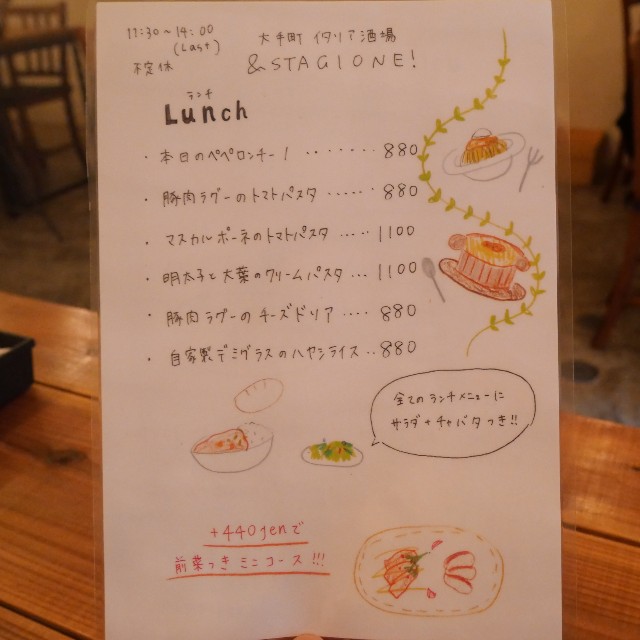 11:30～14:00
(Last)
不定休
大手町 イタリア酒場
& STAGIONE!
ランチ
Lunch
・本日のペペロンチーノ ‥‥‥ 880
・豚肉ラグーのトマトパスタ ‥‥‥ 880
・マスカルポーネのトマトパスタ ‥‥ 1100
・明太子と大葉のクリームパスタ ‥‥ 1100
・豚肉ラグーのチーズドリア ‥‥ 880
・自家製デミグラスのハヤシライス ‥ 880
全てのランチメニューに
サラダ+チャバタつき!!
+440yenで
前菜つきミニコース!!!